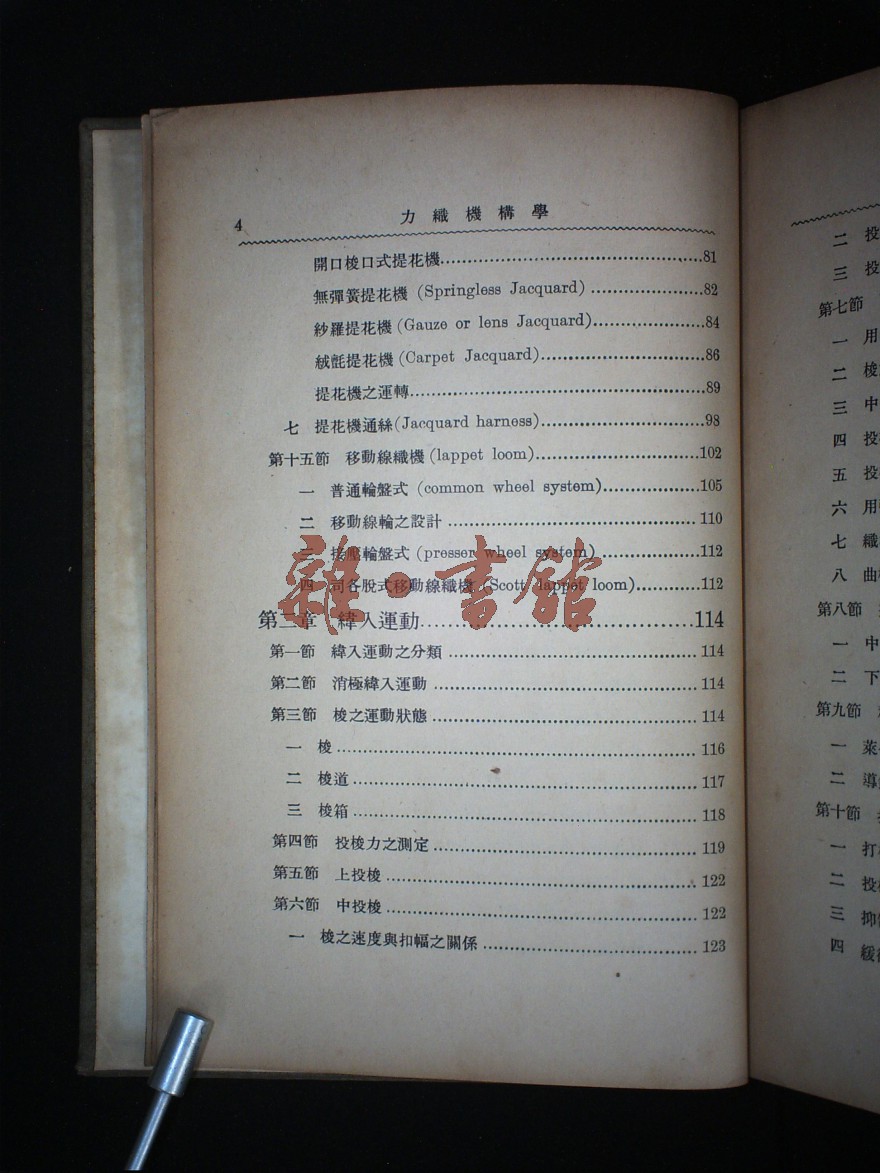 4
力織機構學
開口梭口式提花機 81
無彈簧提花機 (Springless Jacquard) 82
紗羅提花機 (Gauze or lens Jacquard) 84
絨氈提花機 (Carpet Jacquard) 86
提花機之運轉 89
七 提花機通絲 (Jacquard harness) 98
第十五節 移動線織機 (lappet loom) 102
一 普通輪盤式 (common wheel system) 105
二 移動線輪之設計 110
三 接壓輪盤式 (presser wheel system) 112
四 司各脫式移動線織機 (Scott lappet loom) 112
第二章 緯入運動 114
第一節 緯入運動之分類 114
第二節 消極緯入運動 114
第三節 梭之運動狀態 114
一 梭 116
二 梭道 117
三 梭箱 118
第四節 投梭力之測定 119
第五節 上投梭 122
第六節 中投梭 122
一 梭之速度與扣幅之關係 123
雜·書館
二 投
三 投
第七節
一 用
二 梭
三 中
四 投
五 投
六 用
七 織
八 曲
第八節
一 中
二 下
第九節
一 萊
二 導
第十節
一 打
二 投
三 抑
四 緩